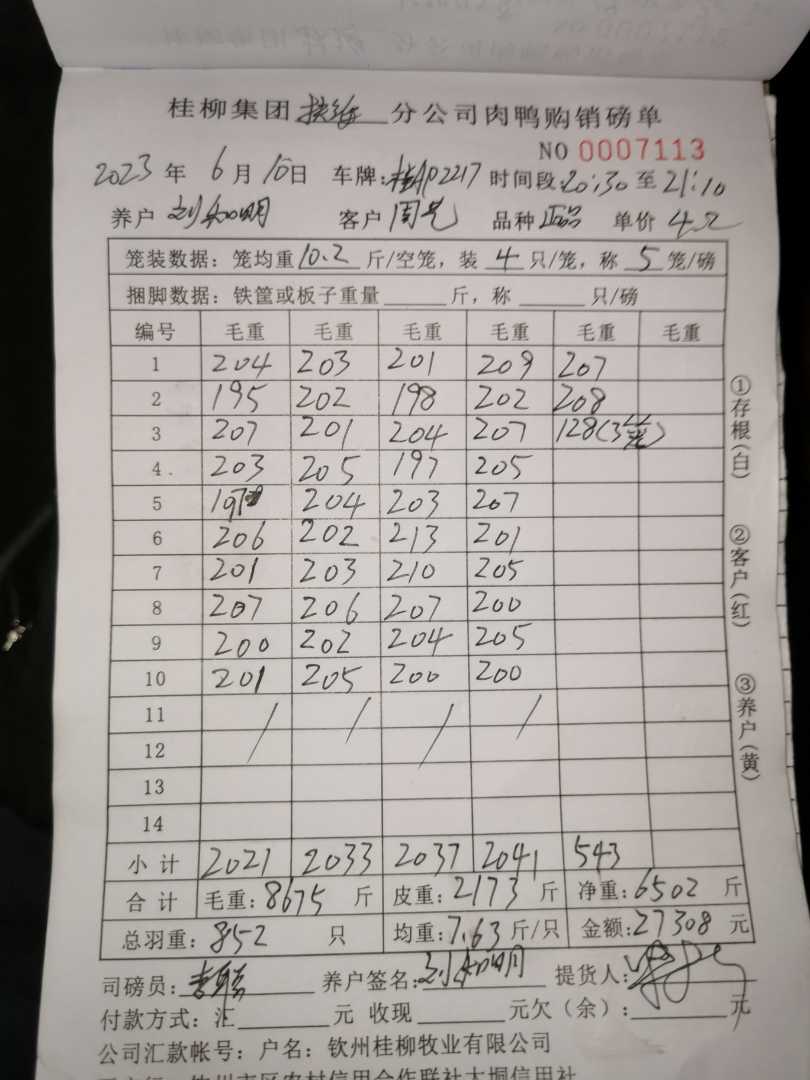 桂柳集团 扶绥 分公司肉鸭购销磅单
NO 0007113
2023 年 6 月 10 日 车牌:桂AP2217 时间段:20:30 至 21:10
养户 刘知明 客户 周光 品种 正品 单价 4.2
笼装数据：笼均重 10.2 斤/空笼，装 4 只/笼，称 5 笼/磅
捆脚数据：铁筐或板子重量 斤，称 只/磅
编号 毛重 毛重 毛重 毛重 毛重 毛重
1 204 203 201 209 207
2 195 202 198 202 208
3 207 201 204 207 128(3笼)
4 203 205 197 205
5 197 204 203 207
6 206 202 213 201
7 201 203 210 205
8 207 206 207 200
9 200 202 204 205
10 201 205 200 200
11
12
13
14
小计 2021 2033 2037 2041 543
合计 毛重:8675 斤 皮重:2173 斤 净重:6502 斤
总羽重:852 只 均重:7.63 斤/只 金额:27308 元
司磅员: 养户签名:刘知明 提货人:
付款方式：汇 元 收现 元欠（余）: 元
公司汇款帐号：户名：钦州桂柳牧业有限公司
①存根(白)
②客户(红)
③养户(黄)